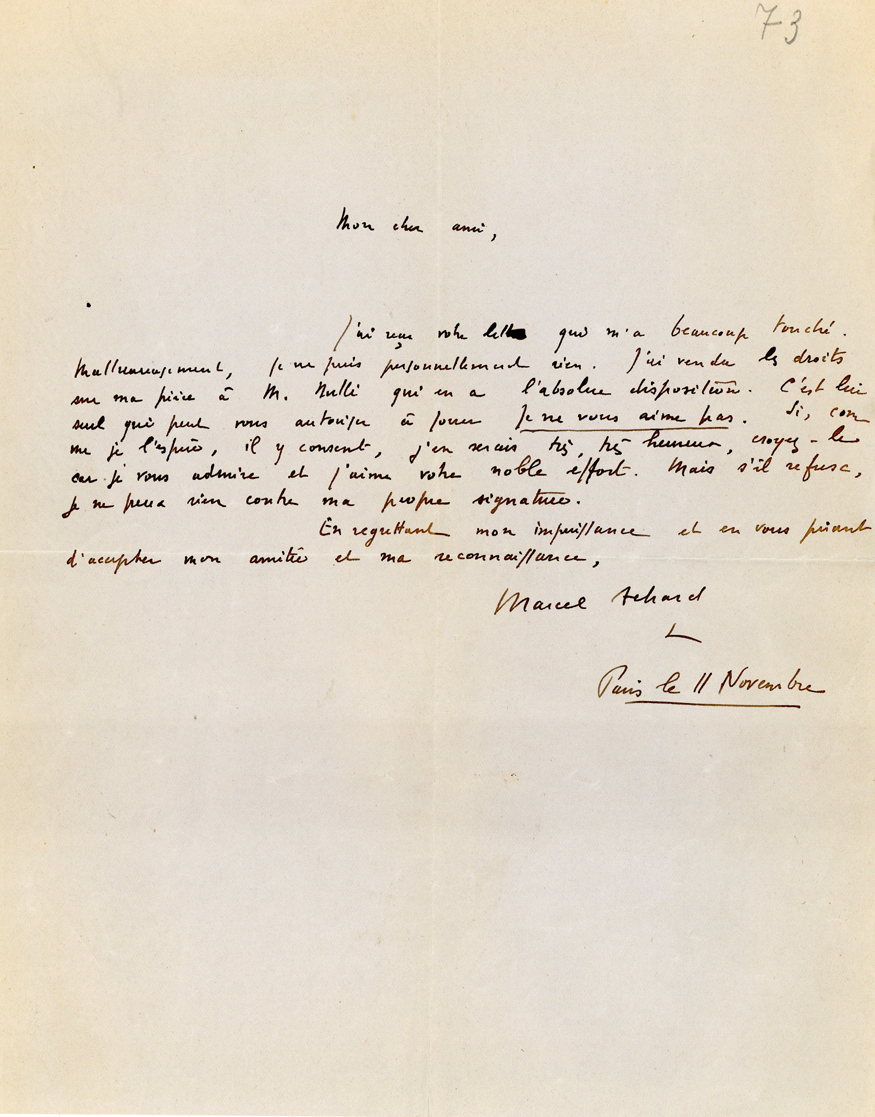 73
Mon cher ami,
J'ai reçu votre lettre qui m'a beaucoup touché.
Malheureusement, je ne puis personnellement rien. J'ai vendu les droits
sur ma pièce à M. Nulli qui en a l'absolue disposition. C'est lui
seul qui peut vous autoriser à jouer Je ne vous aime pas. Si, com
me je l'espère, il y consent, j'en serais très, très heureux, croyez-le
car je vous admire et j'aime votre noble effort. Mais s'il refuse,
je ne peux rien contre ma propre signature.
En regrettant mon impuissance et en vous priant
d'accepter mon amitié et ma reconnaissance,
Marcel Achard
Paris le 11 Novembre